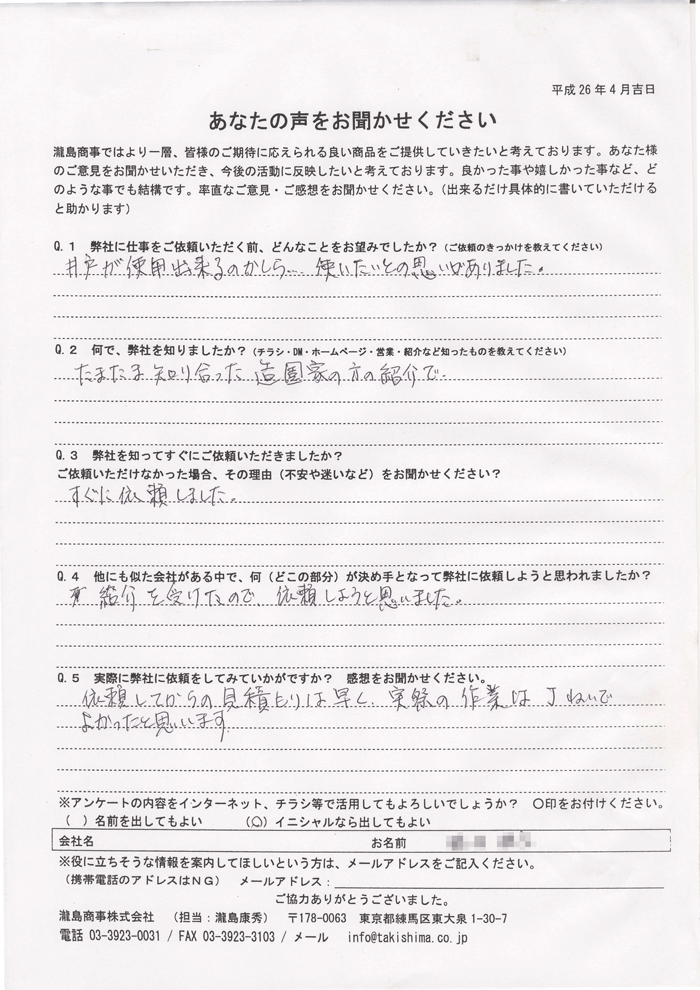 平成26年4月吉日
あなたの声をお聞かせください
瀧島商事ではより一層、皆様のご期待に応えられる良い商品をご提供していきたいと考えております。あなた様
のご意見をお聞かせいただき、今後の活動に反映したいと考えております。良かった事や嬉しかった事など、ど
のような事でも結構です。率直なご意見・ご感想をお聞かせください。(出来るだけ具体的に書いていただける
と助かります)
Q.1 弊社に仕事をご依頼いただく前、どんなことをお望みでしたか?(ご依頼のきっかけを教えてください)
井戸が使用出来るのかしら… 使いたいとの思いがありました。
Q.2 何で、弊社を知りましたか?(チラシ・DM・ホームページ・営業・紹介など知ったものを教えてください)
たまたま知り合った造園家の方の紹介で。
Q.3 弊社を知ってすぐにご依頼いただきましたか?
ご依頼いただけなかった場合、その理由(不安や迷いなど)をお聞かせください?
すぐに依頼しました。
Q.4 他にも似た会社がある中で、何(どこの部分)が決め手となって弊社に依頼しようと思われましたか?
紹介を受けたので、依頼しようと思いました。
Q.5 実際に弊社に依頼をしてみていかがですか? 感想をお聞かせください。
依頼してからの見積もりは早く、実際の作業は丁ねいで
よかったと思います
※アンケートの内容をインターネット、チラシ等で活用してもよろしいでしょうか? 〇印をお付けください。
( )名前を出してもよい (〇)イニシャルなら出してもよい
会社名 お名前
※役に立ちそうな情報を案内してほしいという方は、メールアドレスをご記入ください。
(携帯電話のアドレスはNG) メールアドレス:
ご協力ありがとうございました。
瀧島商事株式会社 (担当:瀧島康秀) 〒178-0063 東京都練馬区東大泉1-30-7
電話 03-3923-0031 / FAX 03-3923-3103 / メール info@takishima.co.jp